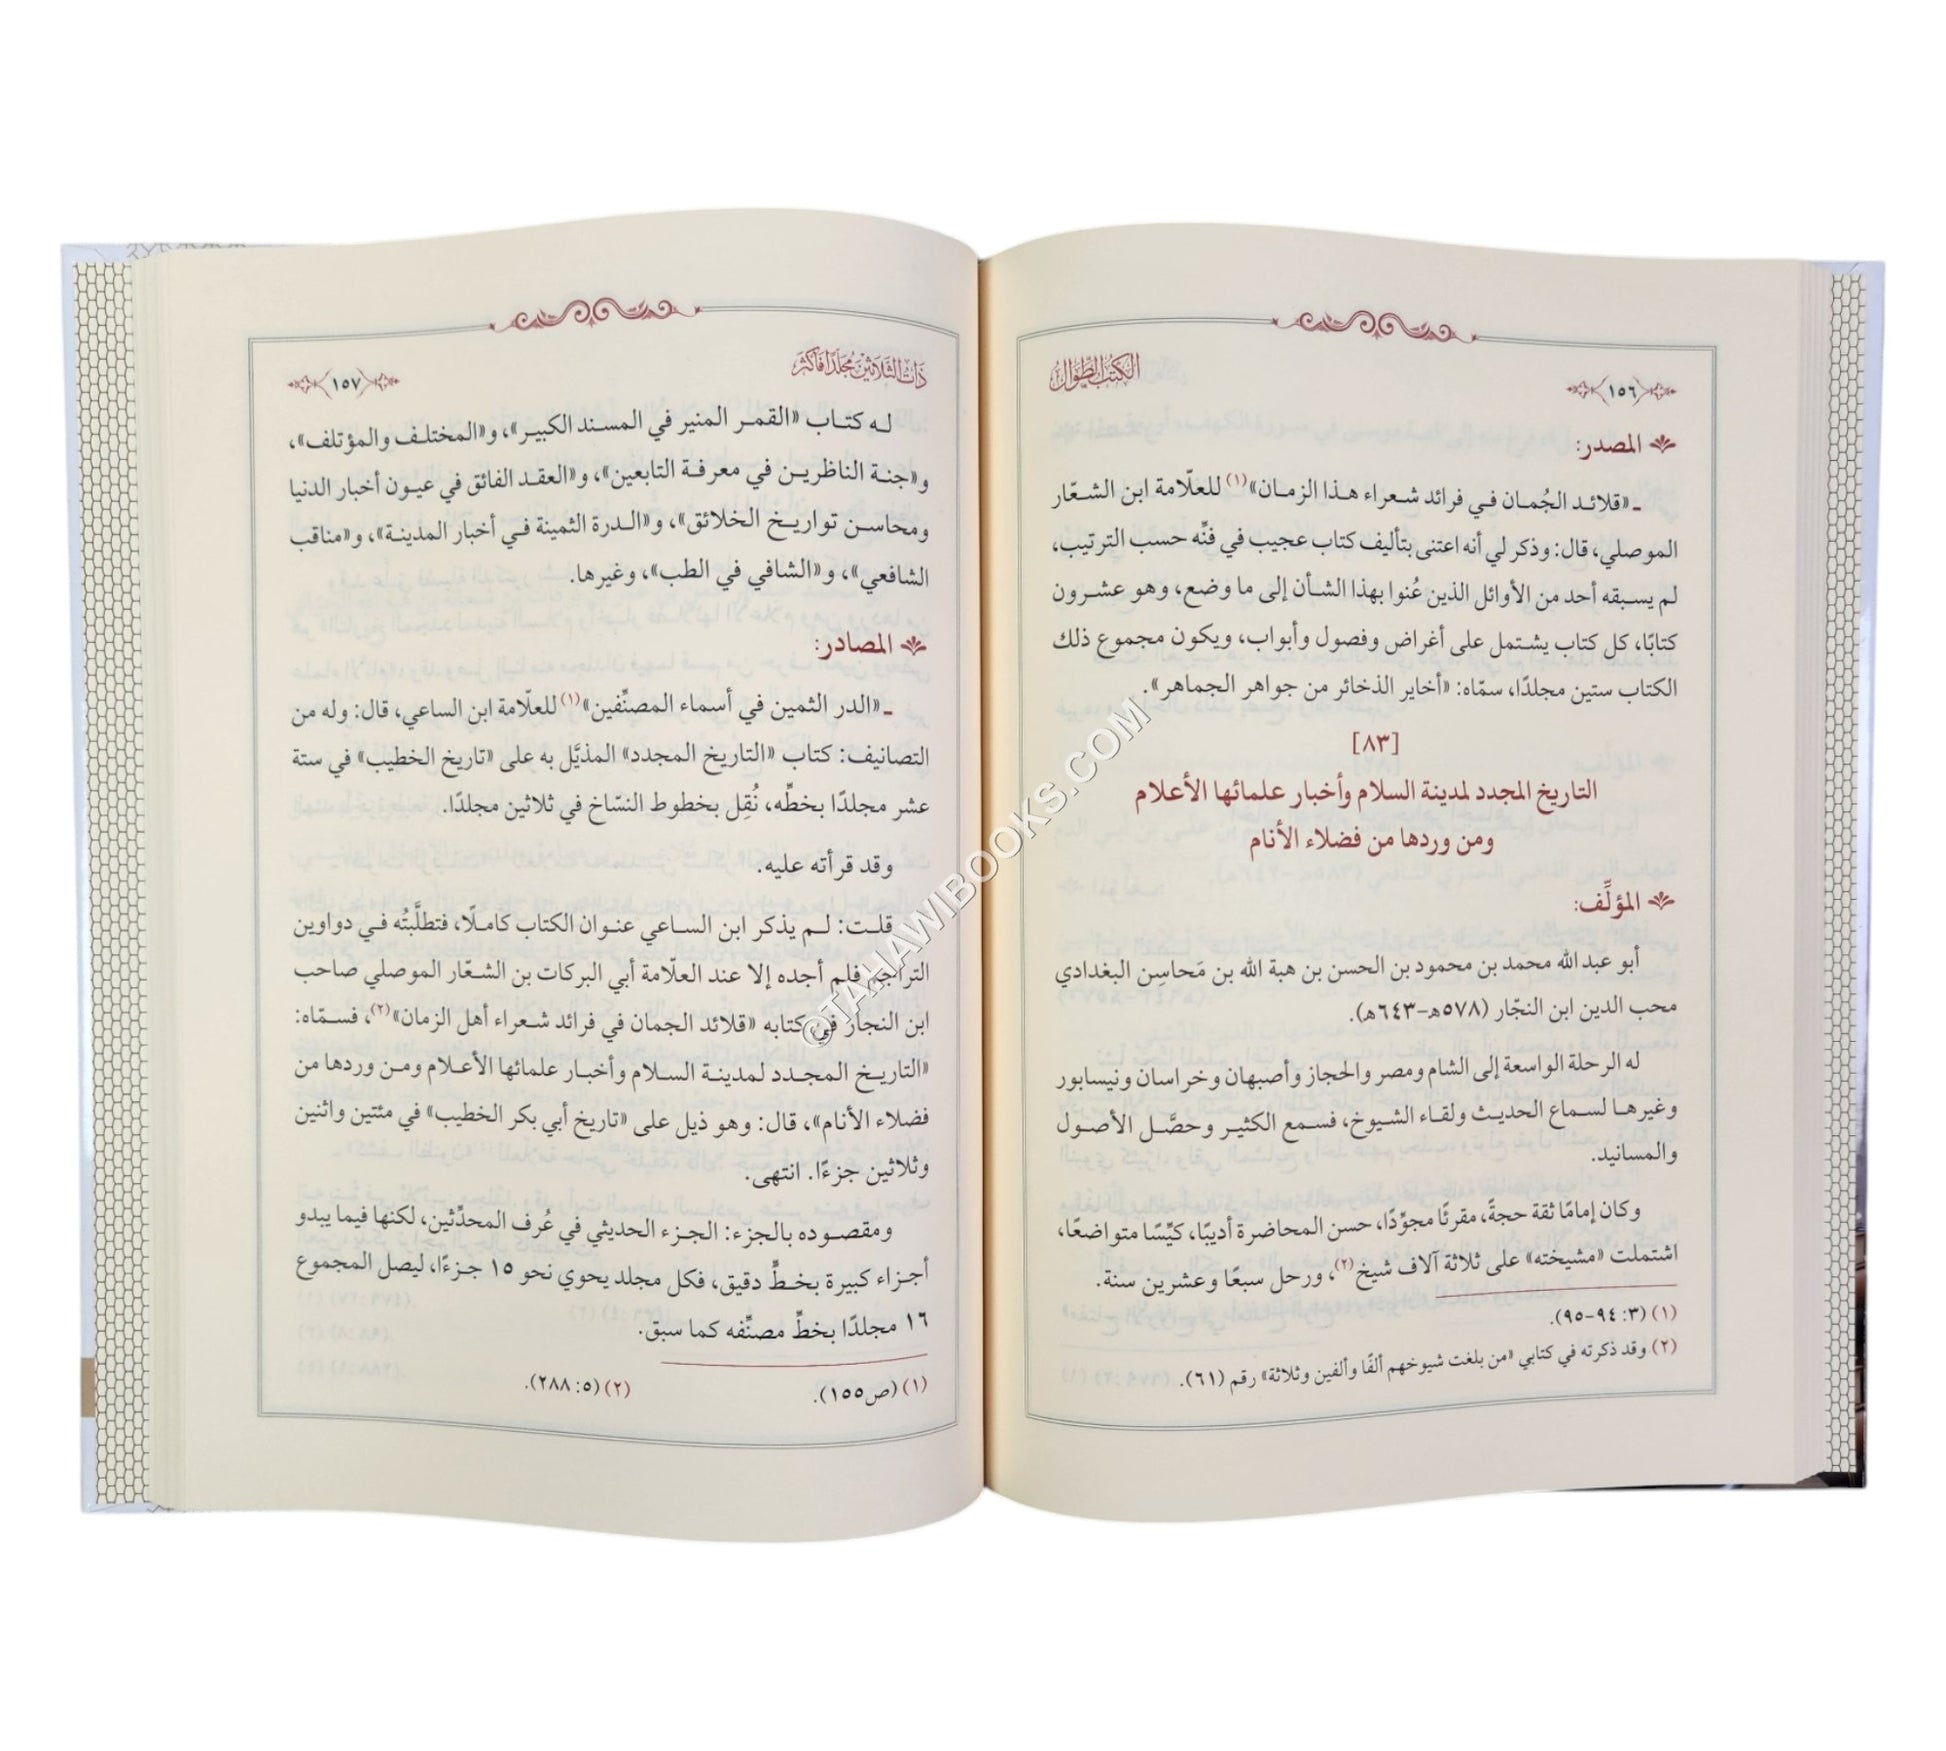 الكتب الطوال
١٥٦
المصدر:
ـ «قلائـد الجُمـان فـي فرائد شـعراء هـذا الزمـان»(١) للعلّامة ابن الشـعّار
الموصلي، قال: وذكر لي أنه اعتنى بتأليف كتاب عجيب في فنِّه حسب الترتيب،
لم يسـبقه أحد من الأوائل الذين عُنوا بهذا الشـأن إلى ما وضع، وهو عشـرون
كتابًا، كل كتاب يشـتمل على أغراض وفصول وأبواب، ويكون مجموع ذلك
الكتاب ستين مجلدًا، سمّاه: «أخاير الذخائر من جواهر الجماهر».
[٨٣]
التاريخ المجدد لمدينة السلام وأخبار علمائها الأعلام
ومن وردها من فضلاء الأنام
المؤلِّف:
أبو عبد الله محمد بن محمود بن الحسن بن هبة الله بن مَحاسِن البغدادي
محب الدين ابن النجّار (٥٧٨هـ-٦٤٣هـ).
له الرحلة الواسعة إلى الشام ومصر والحجاز وأصبهان وخراسان ونيسابور
وغيرهـا لسـماع الحديـث ولقـاء الشـيوخ، فسـمع الكثيـر وحصَّـل الأصـول
والمسانيد.
وكان إمامًا ثقة حجةً، مقرئًا مجوِّدًا، حسن المحاضرة أديبًا، كيِّسًا متواضعًا،
اشتملت «مشيخته» على ثلاثة آلاف شيخ(٢)، ورحل سبعًا وعشرين سنة.
(١) (٣: ٩٤-٩٥).
(٢) وقد ذكرته في كتابي «من بلغت شيوخهم ألفًا وألفين وثلاثة» رقم (٦١).
ذات الثلاثين مجلدًا فأكثر
١٥٧
لـه كتـاب «القمـر المنير في المسـند الكبيـر»، و«المختلـف والمؤتلف»،
و«جنـة الناظريـن في معرفـة التابعين»، و«العقـد الفائق في عيـون أخبار الدنيا
ومحاسـن تواريـخ الخلائق»، و«الـدرة الثمينة فـي أخبار المدينـة»، و«مناقب
الشافعي»، و«الشافي في الطب»، وغيرها.
المصادر:
ـ «الدر الثمين في أسماء المصنِّفين»(١) للعلّامة ابن الساعي، قال: وله من
التصانيف: كتاب «التاريخ المجدد» المذيَّل به على «تاريخ الخطيب» في ستة
عشر مجلدًا بخطِّه، نُقِل بخطوط النسّاخ في ثلاثين مجلدًا.
وقد قرأته عليه.
قلـت: لـم يذكر ابن السـاعي عنـوان الكتاب كامـلًا، فتطلَّبتُه فـي دواوين
التراجم فلم أجده إلا عند العلّامة أبي البركات بن الشـعّار الموصلي صاحب
ابن النجار في كتابه «قلائد الجمان في فرائد شـعراء أهل الزمان»(٢)، فسـمّاه:
«التاريـخ المجـدد لمدينـة السـلام وأخبـار علمائها الأعـلام ومـن وردها من
فضلاء الأنام»، قال: وهو ذيل على «تاريخ أبي بكر الخطيب» في مئتين واثنين
وثلاثين جزءًا. انتهى.
ومقصـوده بالجزء: الجـزء الحديثي في عُرف المحدِّثين، لكنها فيما يبدو
أجـزاء كبيرة بخـطٍّ دقيق، فكل مجلد يحوي نحو ١٥ جـزءًا، ليصل المجموع
١٦ مجلدًا بخطِّ مصنِّفه كما سبق.
(١) (ص١٥٥). (٢) (٥: ٢٨٨).
©TAHAWIBOOKS.COM